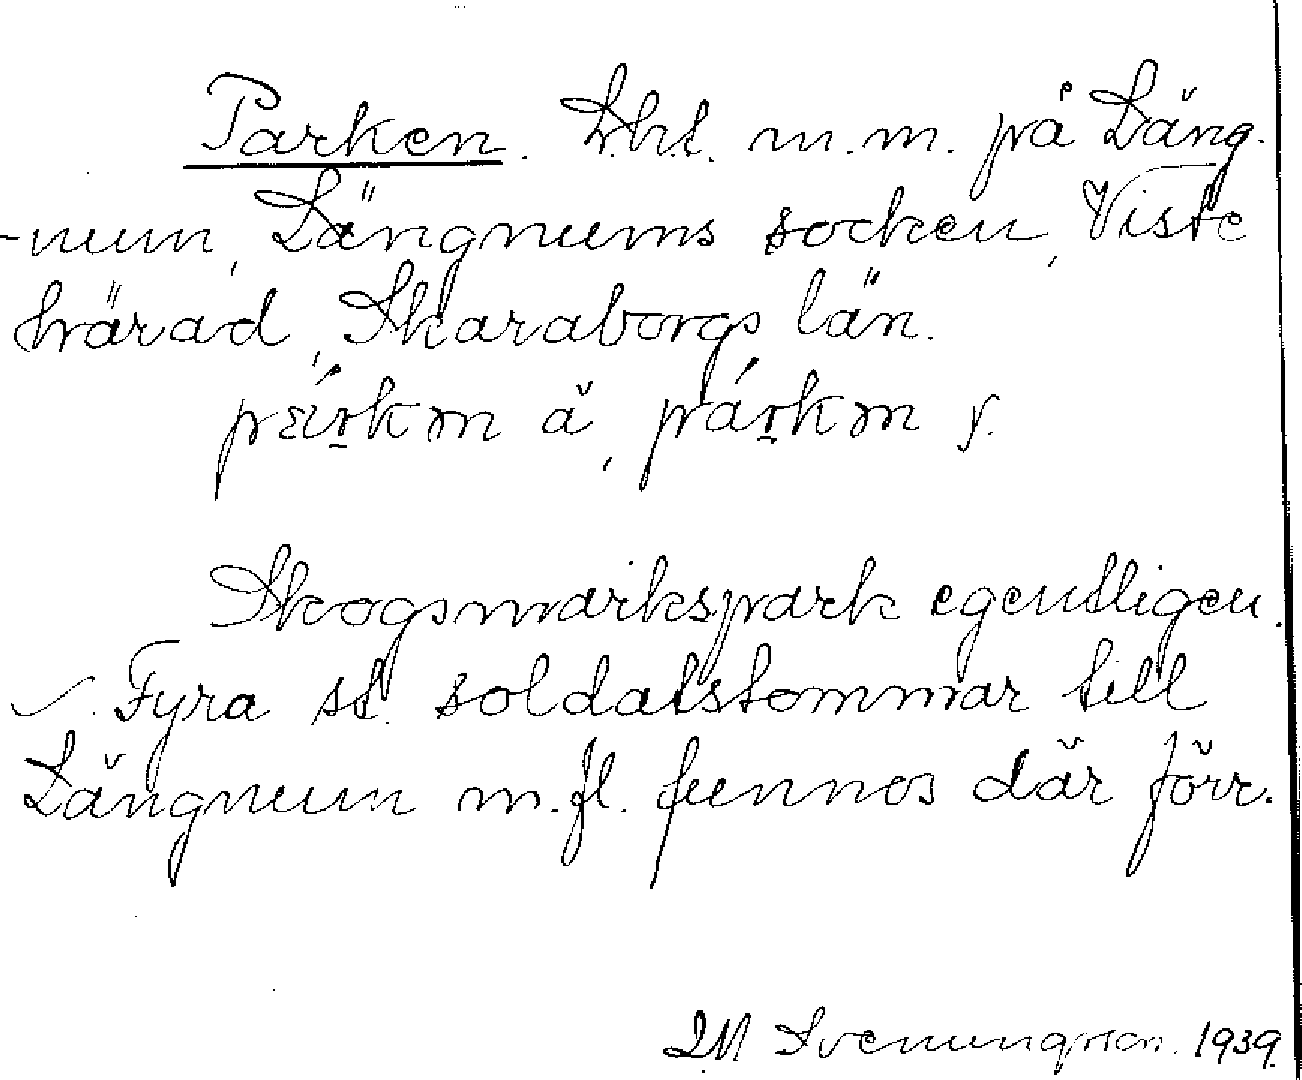 Parken. Lht. m.m. på Läng-
-num, Längnums socken, Viste
härad, Skaraborgs län.
ă, y.
Skogsmarkspark egentligen.
Fyra st. soldatstommar till
Längnum m.fl. funnos där förr.
Svenungsson. 1939.